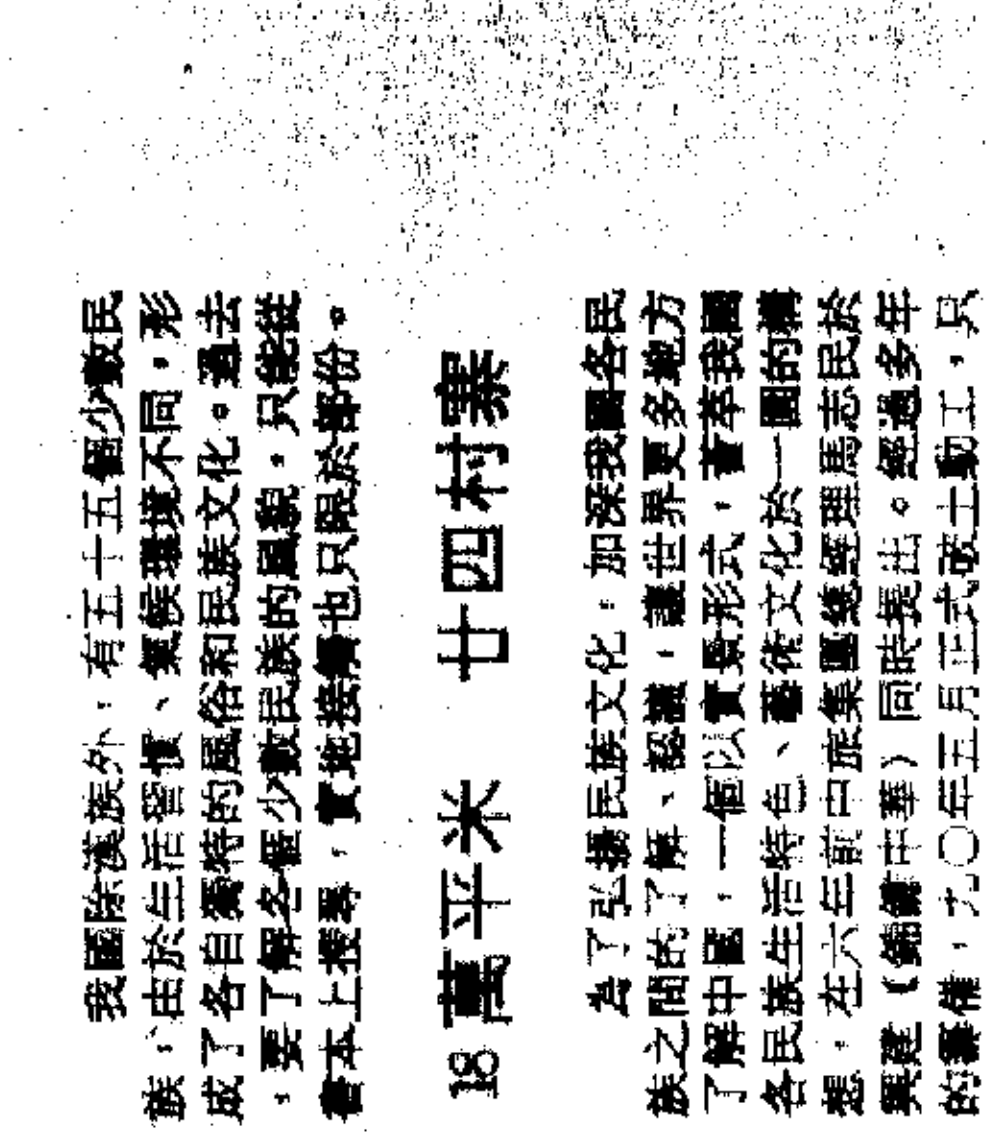 我國除漢族外，有五十五個少數民
族，由於生活習慣、氣候環境不同，形
成了各自獨特的風俗和民族文化。過去
，要了解各個少數民族的風貌，只能從
書本上搜尋，實地接觸也只限於部份。
18萬平米 廿四村寨
為了弘揚民族文化，加深我國各民
族之間的了解、認識，讓世界更多地方
了解中國，一個以實景形式，薈萃我國
各民族生活特色、藝術文化於一園的構
想，在六年前由中旅集團總經理馬志民於
興建（錦繡中華）同時提出。經過多年
的籌備，九〇年五月正式破土動工，只